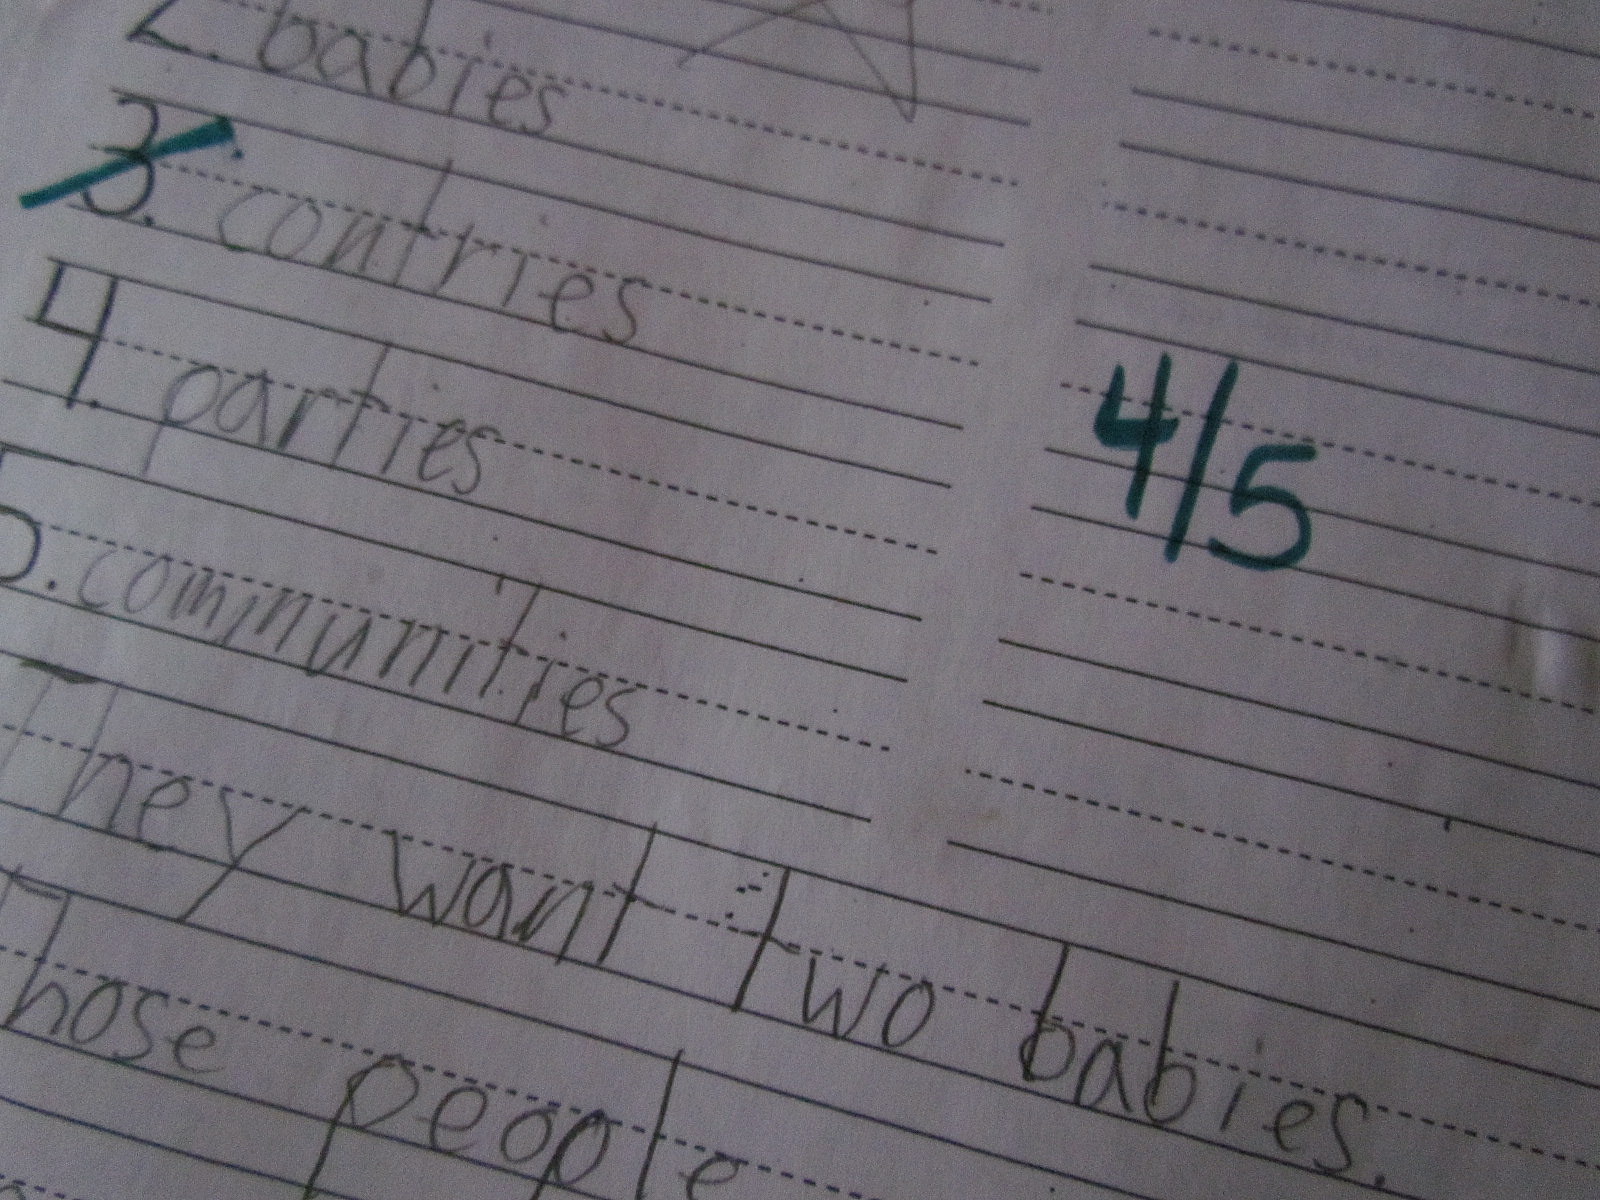 2. babies
3. contries
4. parties
4/5
5. communities
They want two babies.
Those people